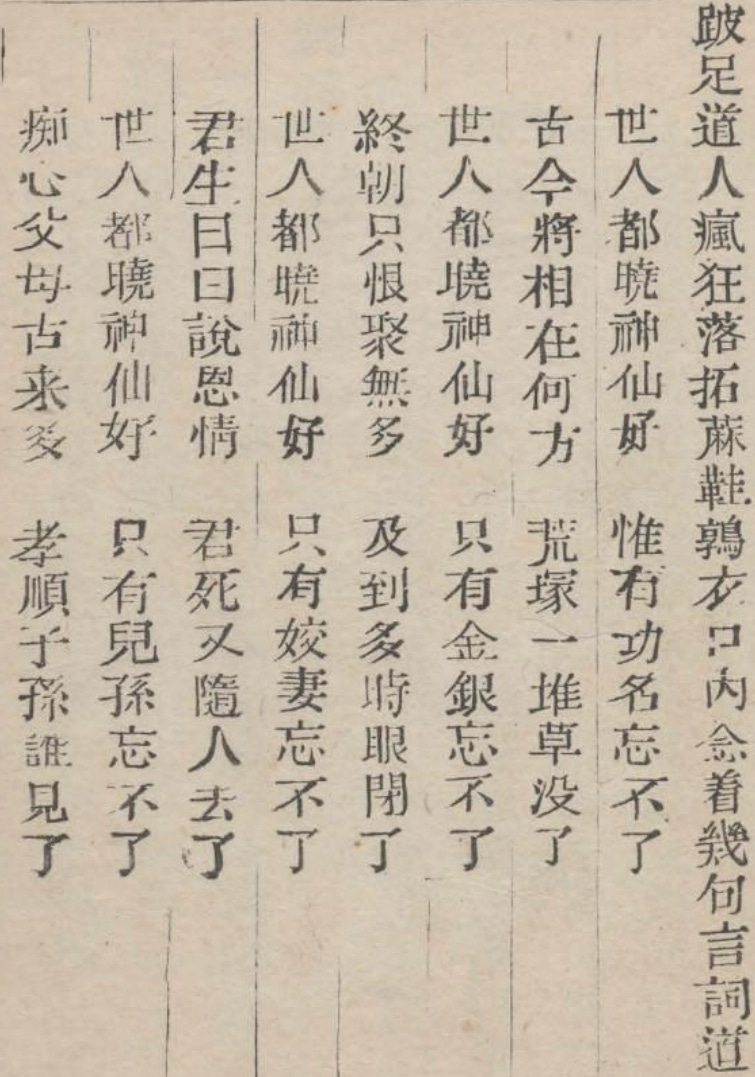 跛足道人瘋狂落拓蔴鞋鶉衣口內念着幾句言詞道
世人都曉神仙好　惟有功名忘不了
古今將相在何方　荒塚一堆草没了
世人都曉神仙好　只有金銀忘不了
終朝只恨聚無多　及到多時眼閉了
世人都曉神仙好　只有姣妻忘不了
君生日日說恩情　君死又隨人去了
世人都曉神仙好　只有兒孫忘不了
痴心父母古来多　孝順子孫誰見了